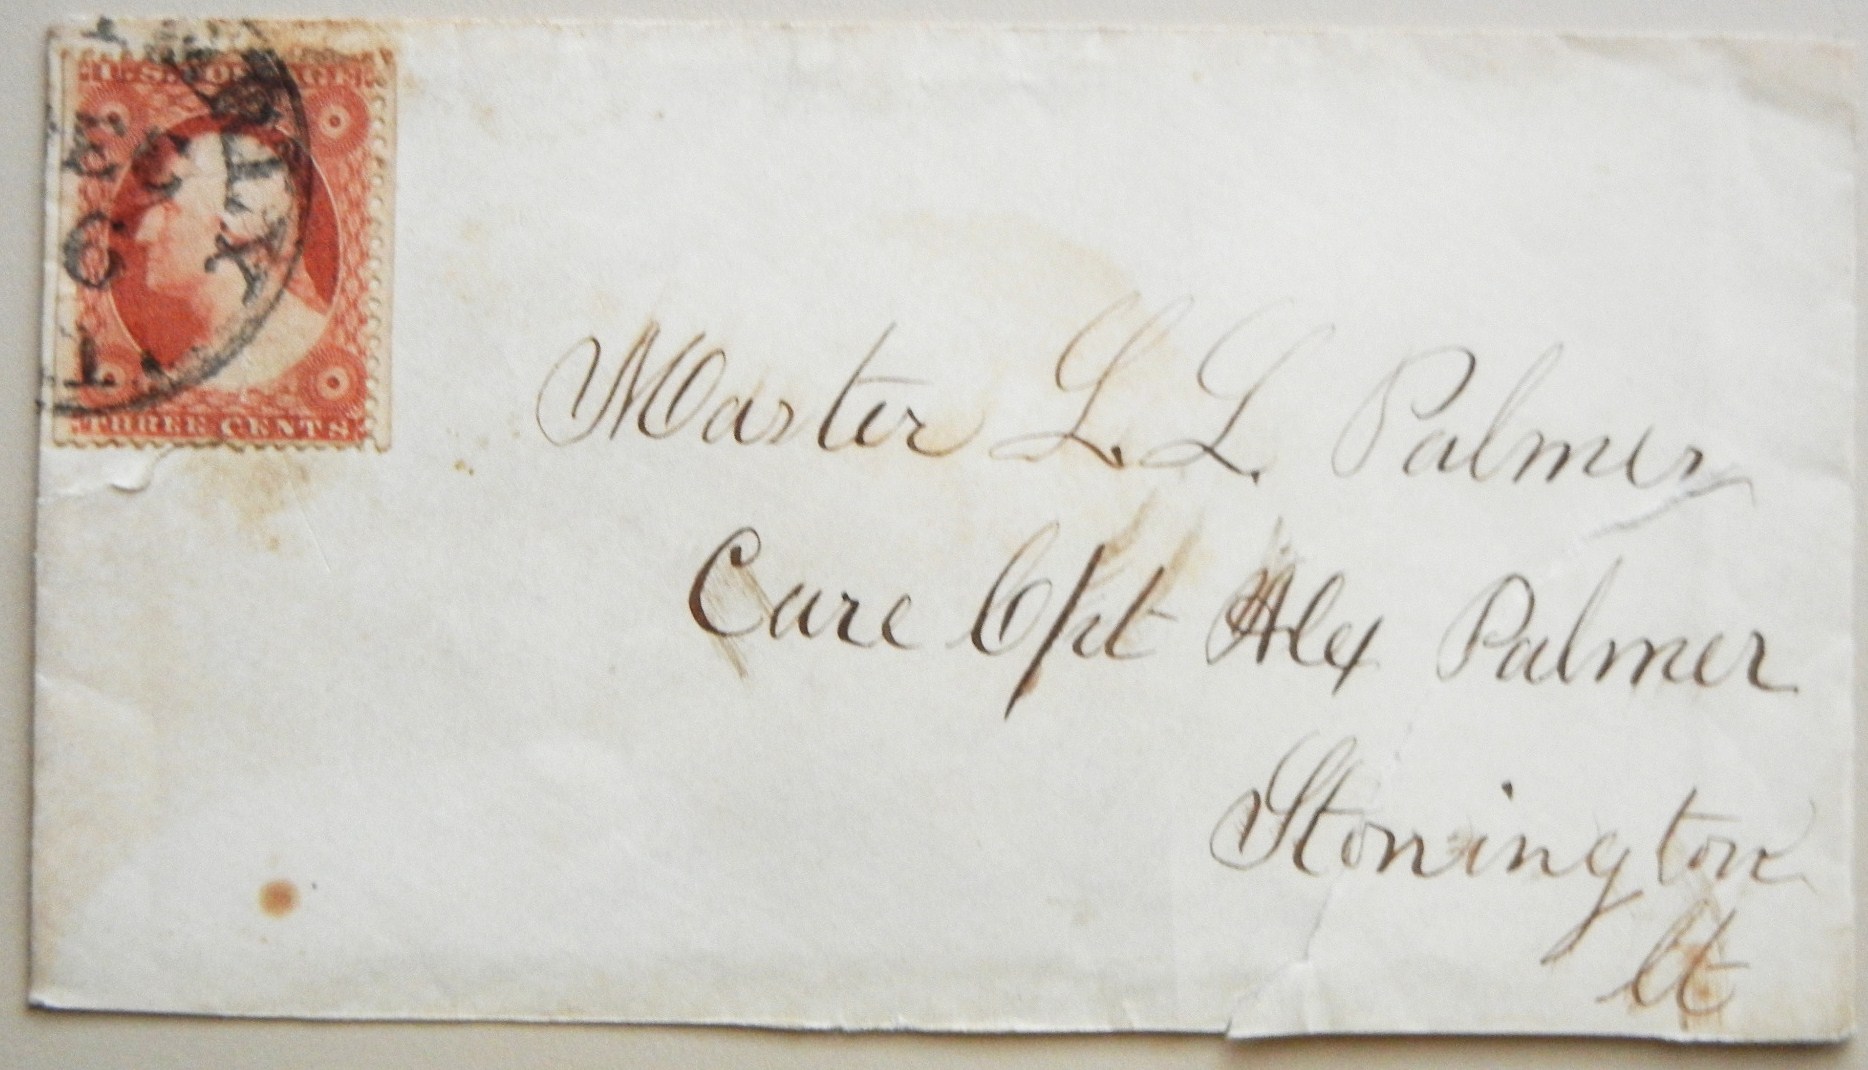 U.S. POSTAGE
THREE CENTS
Master L. L. Palmer
Care Cpt Alex Palmer
Stonington
Ct